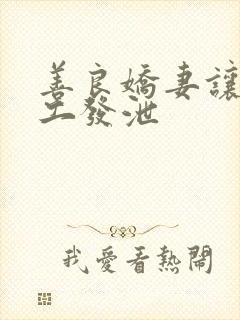 善良嬌妻讓
工發泄
我愛看熱鬧